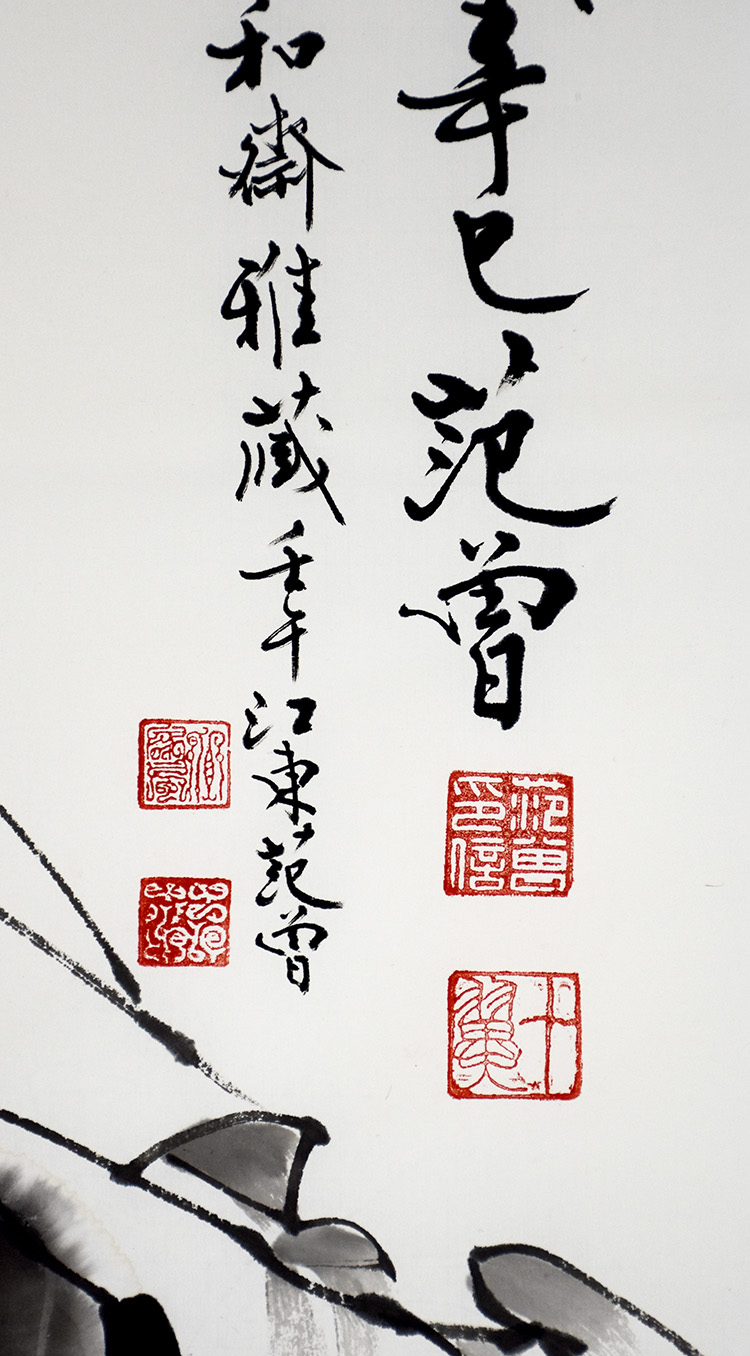 辛巳、范曾
和齋雅藏壬午江東范曾
范曾
印信
十翼